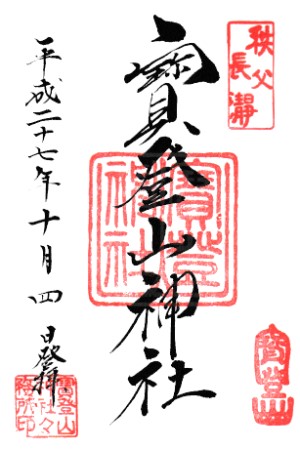 秩父
長瀞
寳登山神社
寳登山神社
寳登山
平成二十七年十月四日登拝
寳登山
神社々
務所印